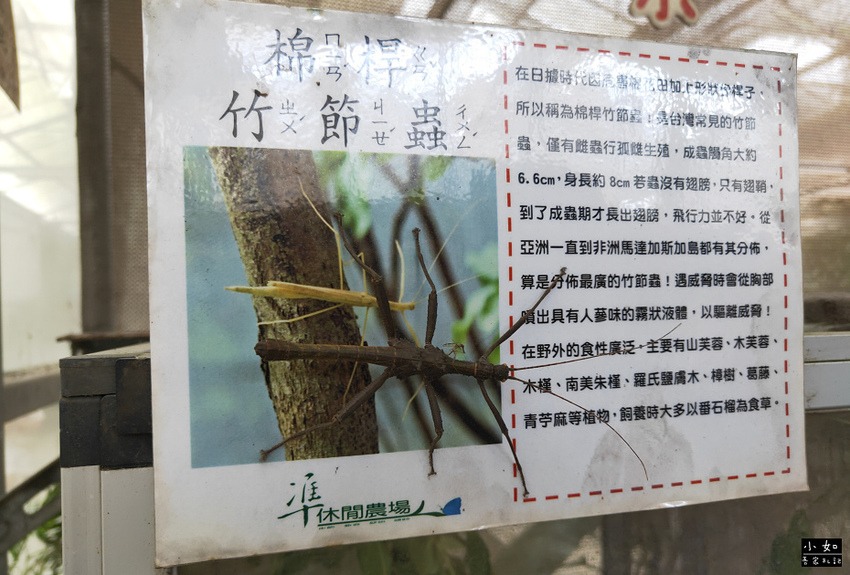 棉桿
ㄇㄧㄢˊ ㄍㄢˇ
竹節蟲
ㄓㄨˊ ㄐㄧㄝˊ ㄔㄨㄥˊ
在日據時代因危害棉花田加上形狀似桿子，
所以稱為棉桿竹節蟲！為台灣常見的竹節
蟲，僅有雌蟲行孤雌生殖，成蟲觸角大約
6.6cm，身長約 8cm若蟲沒有翅膀，只有翅鞘，
到了成蟲期才長出翅膀，飛行力並不好。從
亞洲一直到非洲馬達加斯加島都有其分佈，
算是分佈最廣的竹節蟲！遇威脅時會從胸部
噴出具有人蔘味的霧狀液體，以驅離威脅！
在野外的食性廣泛，主要有山芙蓉、木芙蓉、
木槿、南美朱槿、羅氏鹽膚木、樟樹、葛藤、
青苧麻等植物，飼養時大多以番石榴為食草。
準休閒農場
小如
吾家札記